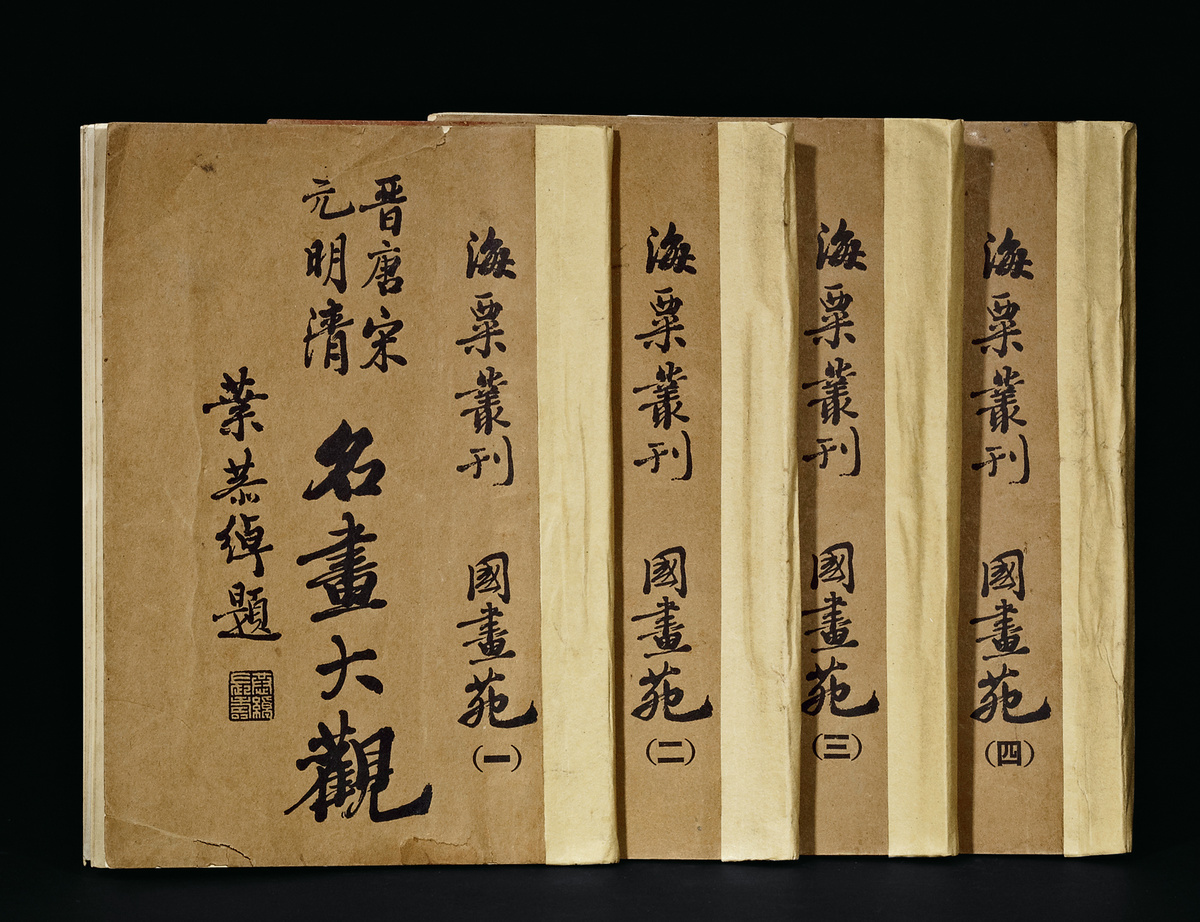 海粟叢刊 國畫苑(一)
晋唐宋
元明清
名畫大觀
葉恭綽題
海粟叢刊 國畫苑(二)
海粟叢刊 國畫苑(三)
海粟叢刊 國畫苑(四)